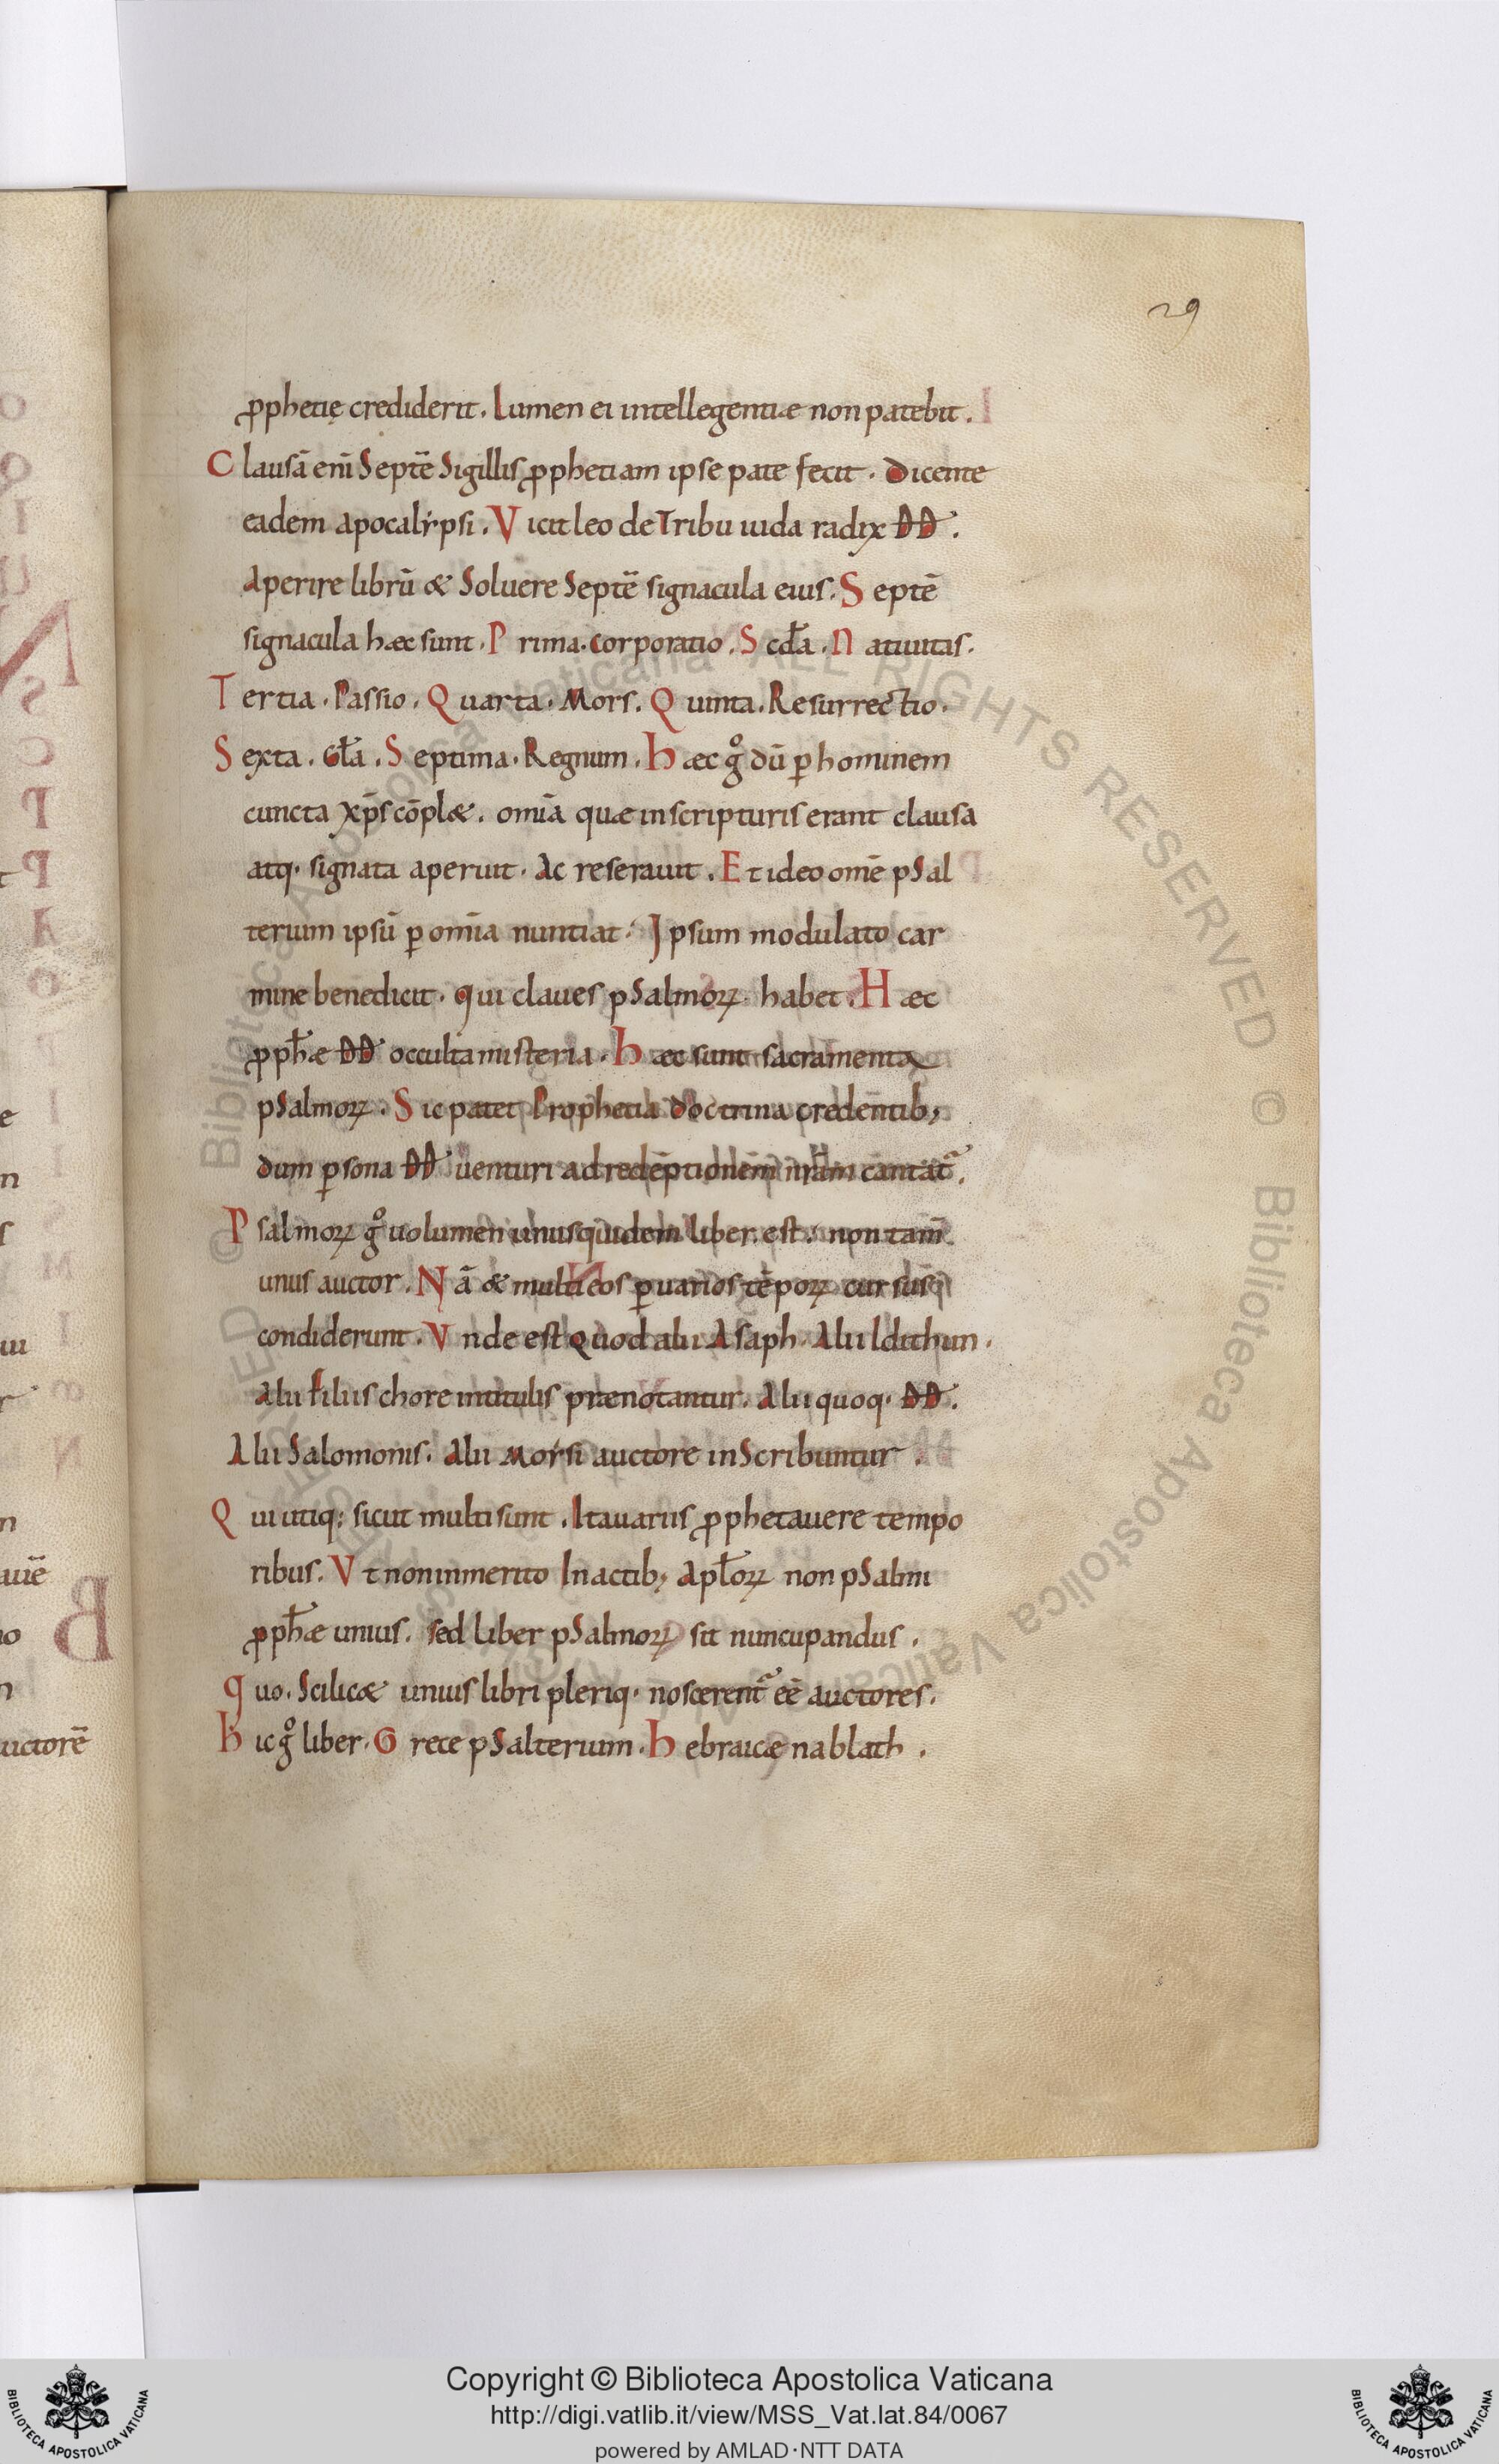 29
ꝓphetię crediderit. Lumen ei intellegentiae non patebit.
Clausā eni̅ Septē Sigillis ꝓphetiam ipse pate fecit. Dicente
eadem apocalẏpsi. Vicit leo de Tribu iuda radix DD̅.
Aperire librū & Soluere Septē signacula eius. Septē
signacula haec sunt. Prima. corporatio. Scd̅a. Natiuitas.
Tertia. Passio. Quarta. Mors. Quinta. Resurrectio.
Sexta. Gl̅a. Septima. Regnum. haec gͦ dū ꝑ hominem
cuncta xp̅s cōpl&. omi̅a quae in scripturis erant clausa
atq· signata aperuit. Ac reserauit. Et ideo omē pSal
terium ipsū ꝑ omi̅a nuntiat. Ipsum modulato car
mine benedicit. qui claues pSalmoꝝ habet. Haec
ꝓph̅ae DD̅ occulta misteria. haec sunt sacramenta
pSalmoꝝ. Sic patet Prophetia doctrina credentib;
dum ꝑsona DD̅ uenturi ad redēptionem nr̅am cantat᷑.
Psalmoꝝ gͦ uolumen unus quidem liber. est. non tam̅
unus auctor. Nā & multi eos ꝑ uarios tēpoꝝ cursus
condiderunt. Vnde est Quod alii Asaph. Alii Idithun.
Alii filiis chore in titulis praenotantur. Alii quoq· DD̅.
Alii Salomonis. Alii Moẏsi auctore inScribuntur.
Qui utiq: sicut multi sunt. Ita uariis ꝓphetauere tempo
ribus. Vt non inmerito In actib; apl̅oꝝ non pSalmi
ꝓph̅ae unius. sed liber pSalmoꝝ sit nuncupandus.
quo. Scilic& unius libri pleriq· noscerent᷑ eē auctores.
hic gͦ liber. Grece pSalterium. hebraicae nablath.
Copyright © Biblioteca Apostolica Vaticana
http://digi.vatlib.it/view/MSS_Vat.lat.84/0067
powered by AMLAD·NTT DATA